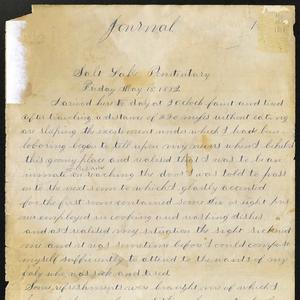 Journal 1
Salt Lake Penitentiary
Friday May 15. 1882
I arived her to day at 3 O clock faint and tired
after traveling a distance of 230 miles without eating
are sleeping the excitement under which I had been
laboring began to tell upon my nerves when I beheld
this gloomy place and realised that I was to be an
inmate on reaching the doors was told to pass
in to the next room to which I gladly accented
for the first room contained some six or eight pris
employed in cooking and washing dishes
and as I realised my situation the sight
me and it was sometime before I could compose
myself sufficiently to attend to the wants of my
baby who was sick and tired
Some refreshments were brought me of which I